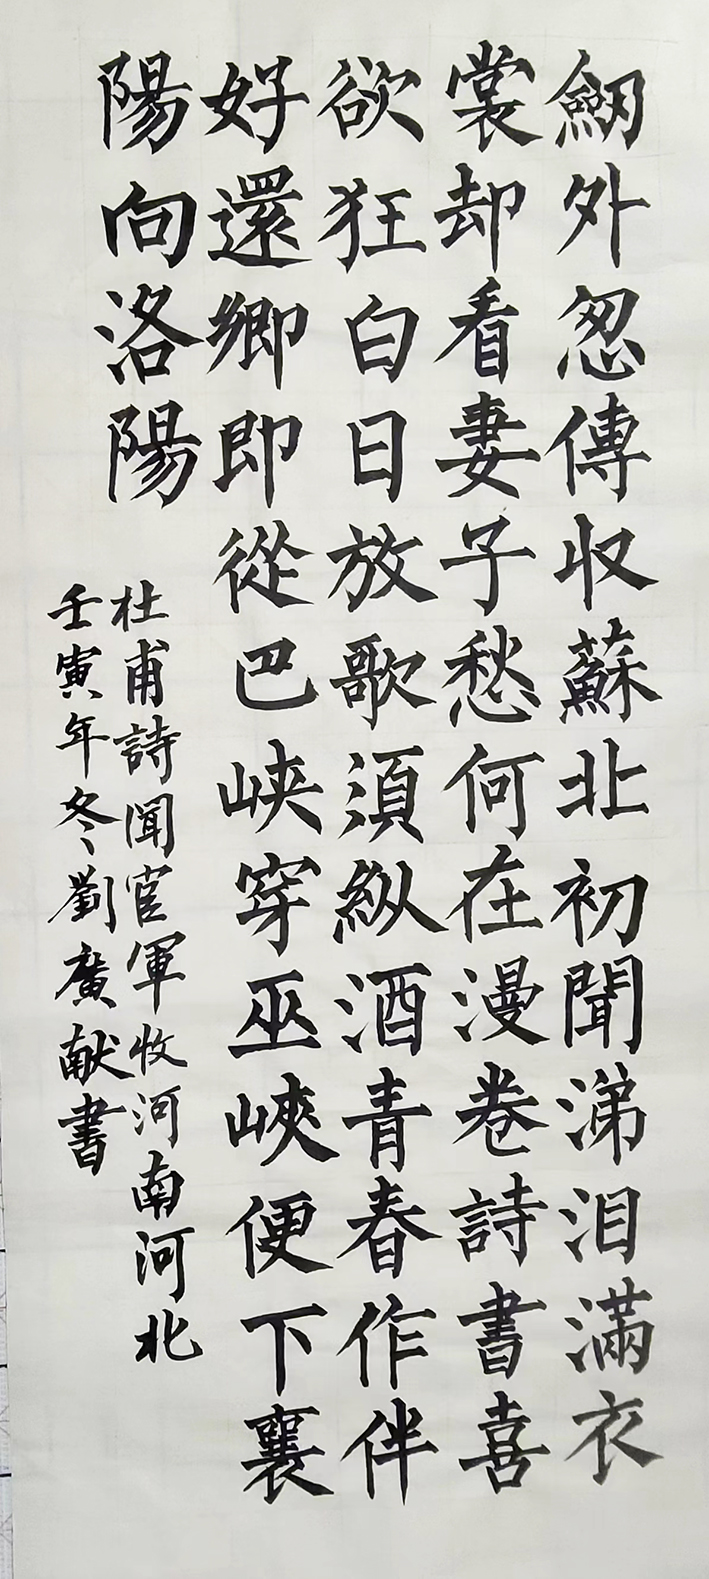 劒外忽傳収蘇北初聞涕泪滿衣
裳却看妻子愁何在漫卷詩書喜
欲狂白日放歌湏縱酒青春作伴
好還鄉即從巴峽穿巫峽便下襄
陽向洛陽
杜甫詩聞官軍收河南河北
壬寅年冬劉廣献書